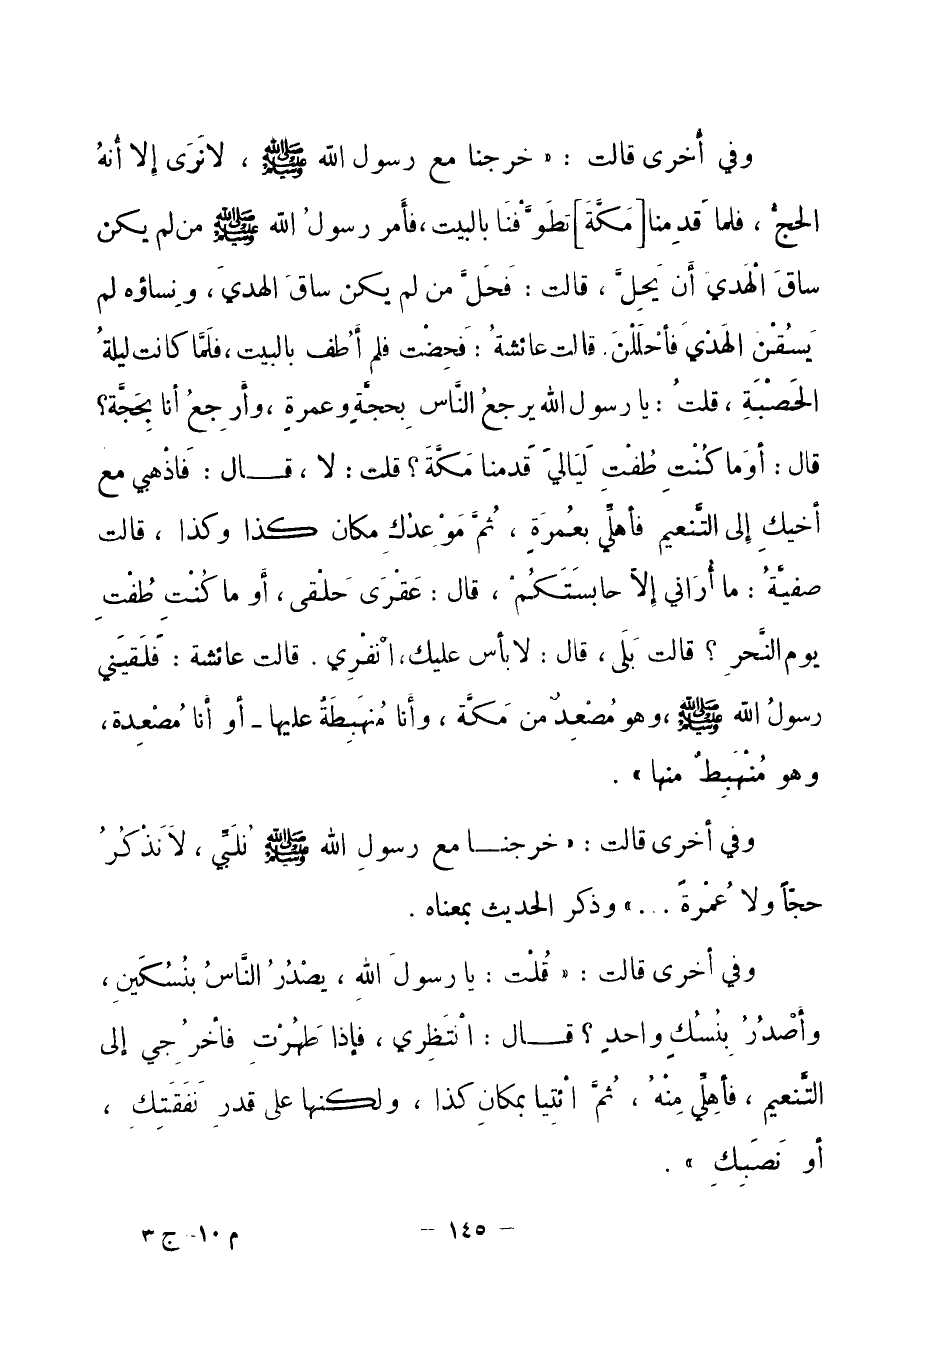 وفي أُخرى قالت : « خرجنا مع رسول الله ﷺ ، لا نَرَى إلا أنهُ
الحجُّ ، فلما قَدِمنا [مَكَّةَ] تطَوَّفْنَا بالبيت ، فأَمر رسولُ الله ﷺ من لم يكن
ساقَ الْهَديَ أَن يَحِلَّ ، قالت : فَحَلَّ من لم يكن ساقَ الهديَ ، ونساؤه لم
يَسُقْنَ الهَدْيَ فأحْلَلْنَ . قالت عائشةُ : فَحِضْت فلم أَطف بالبيت ، فلَمَّا كانت ليلةُ
الحَصْبَةِ ، قلتُ : يا رسول الله يرجعُ النَّاس بحجَّةٍ وعمرةٍ ، وأَرجعُ أنا بِحَجَّة ؟
قال : أوَما كُنْتِ طُفْتِ لَيَاليَ قَدمنا مَكَّةَ ؟ قلت : لا ، قـــال : فَاذْهبي مع
أخيكِ إلى التَّنعيم فأهلِّي بعُمرَةٍ ، ثُمَّ مَوْعدُك مكان كذا وكذا ، قالت
صفيَّةُ : ما أُرَاني إلاَّ حابسَتَكُمْ ، قال : عَقْرَى حَلْقى ، أَو ما كُنْتِ طُفْتِ
يوم النَّحرِ ؟ قالت بَلَى ، قال : لا بأس عليك ، اْنفْرِي . قالت عائشة : فَلَقيَني
رسولُ الله ﷺ ، وهو مُصْعِدٌ من مَكَّة ، وأنا مُنهَبِطَةٌ عليها - أو أنا مُصْعِدة ،
وهو مُنْهَبِطٌ منها » .
وفي أخرى قالت : « خرجنـــا مع رسولِ الله ﷺ نُلَبِّي ، لاَ نَذْكُرُ
حجّاً ولا عُمْرةً ... » وذكر الحديث بمعناه .
وفي أخرى قالت : « قُلْت : يا رسولَ اللهِ ، يصْدُرُ النَّاسُ بنُسُكَينِ ،
وأَصْدُرُ بِنُسُكٍ واحدٍ ؟ قـــال : اْنتَظِري ، فإذا طَهُرْتِ فأخرُجي إلى
التَّنعيم ، فأهِلِّي مِنْهُ ، ثُمَّ ائْتِيا بمكانِ كذا ، ولكنها على قدرِ نَفَقَتِكِ ،
أو نَصَبِكِ » .
م ١٠ - ج ٣
- ١٤٥ -